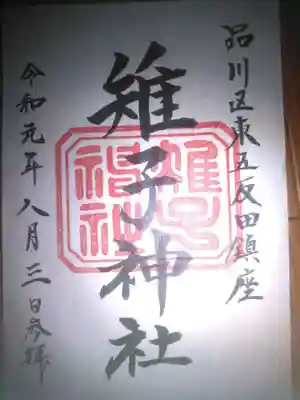 品川区東五反田鎮座
雉子神社
雉子
神社
令和元年八月三日参拝